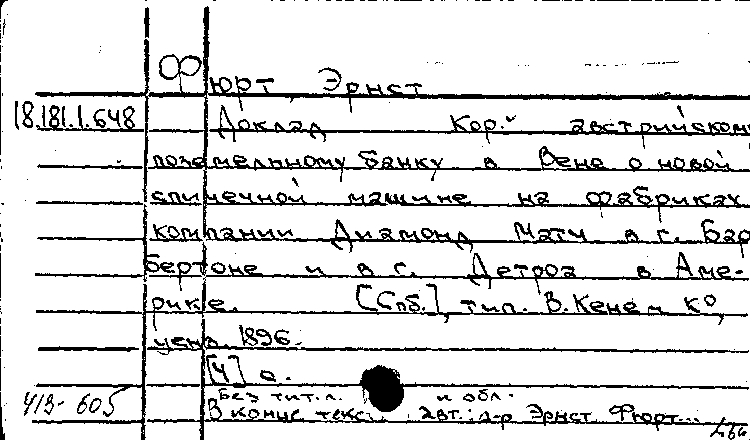 Фюрт, Эрнст
18.181.1.648 Доклад Кор. австрийскому
поземельному банку в Вене о новой
спичечной машине на фабриках
компании Диамонд Матч в г. Бар
бертоне и в г. Детроа в Аме-
рике. [Спб.], тип. В. Кене и К°,
ценз. 1896.
[4] с.
Без тит. л. и обл.
В конце текс авт.: д-р Эрнст Фюрт